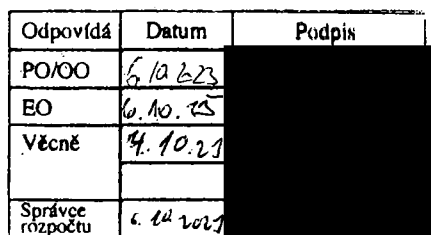 Odpovídá Datum Podpis
PO/OO 6.10.2023
EO 6.10.
Věcně 4.10.23
Správce
rozpočtu 6.10.2023